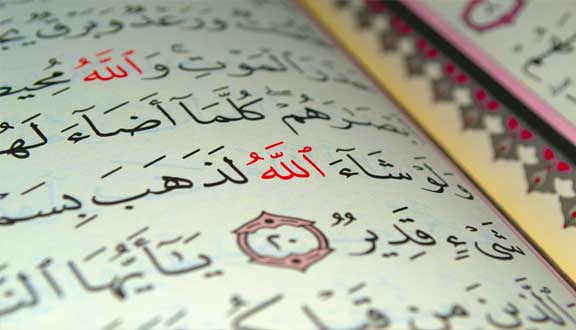 وَرَعْدٌ وَبَرْقٌ
ٱلْمَوْتِ ۚ وَٱللَّهُ مُحِيط
كُلَّمَآ أَضَآءَ لَهُ
وَلَوْ شَآءَ ٱللَّهُ لَذَهَبَ بِسَمْ
شَىْءٍ قَدِيرٌ ٢٠ يَـٰٓأَيُّهَا ٱلنَّ
ٱلَّذِينَ مِن قَبْلِكُ